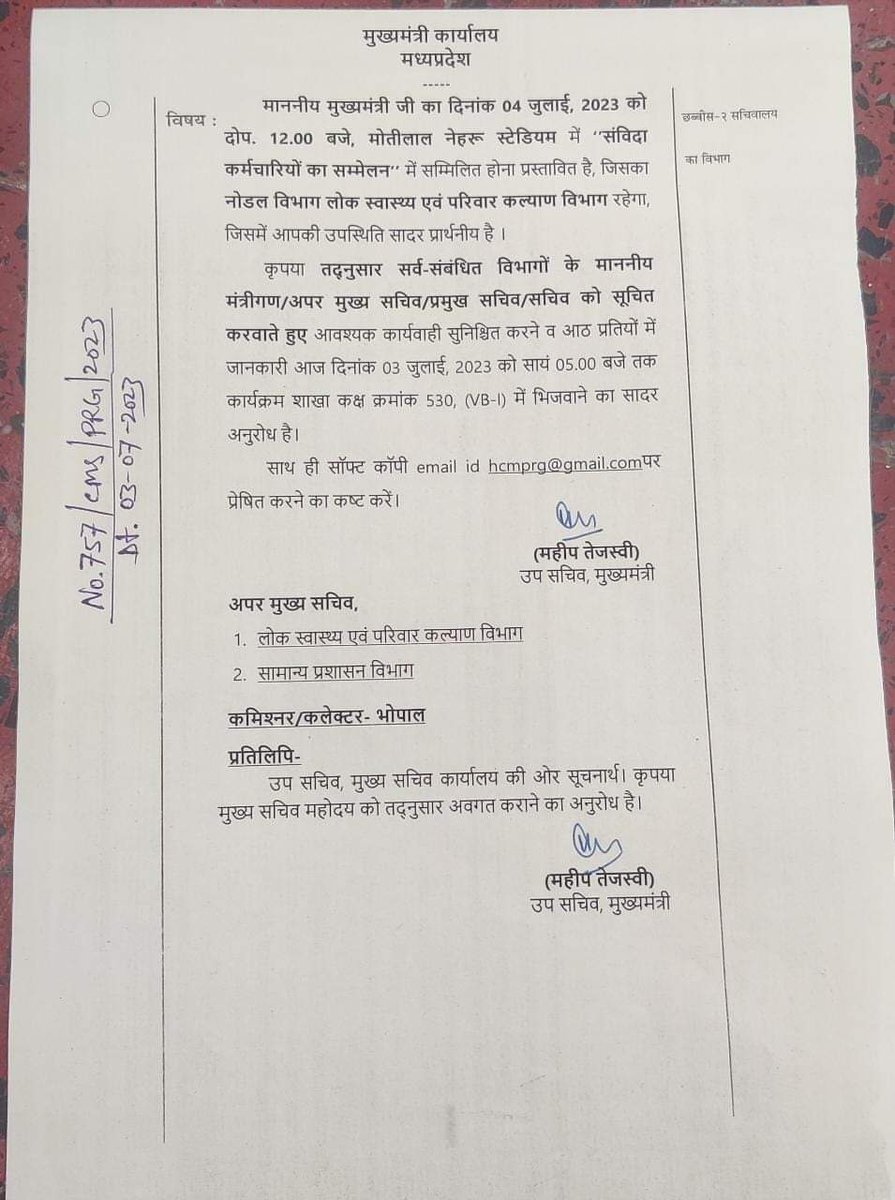 मुख्यमंत्री कार्यालय
मध्यप्रदेश
-----
विषय :
माननीय मुख्यमंत्री जी का दिनांक 04 जुलाई, 2023 को
दोप. 12.00 बजे, मोतीलाल नेहरू स्टेडियम में ''संविदा
कर्मचारियों का सम्मेलन'' में सम्मिलित होना प्रस्तावित है, जिसका
नोडल विभाग लोक स्वास्थ्य एवं परिवार कल्याण विभाग रहेगा,
जिसमें आपकी उपस्थिति सादर प्रार्थनीय है ।
कृपया तद्नुसार सर्व-संबंधित विभागों के माननीय
मंत्रीगण/अपर मुख्य सचिव/प्रमुख सचिव/सचिव को सूचित
करवाते हुए आवश्यक कार्यवाही सुनिश्चित करने व आठ प्रतियों में
जानकारी आज दिनांक 03 जुलाई, 2023 को सायं 05.00 बजे तक
कार्यक्रम शाखा कक्ष क्रमांक 530, (VB-I) में भिजवाने का सादर
अनुरोध है।
साथ ही सॉफ्ट कॉपी email id hcmprg@gmail.comपर
प्रेषित करने का कष्ट करें।
(महीप तेजस्वी)
उप सचिव, मुख्यमंत्री
अपर मुख्य सचिव,
1. लोक स्वास्थ्य एवं परिवार कल्याण विभाग
2. सामान्य प्रशासन विभाग
कमिश्नर/कलेक्टर- भोपाल
प्रतिलिपि-
उप सचिव, मुख्य सचिव कार्यालय की ओर सूचनार्थ। कृपया
मुख्य सचिव महोदय को तद्नुसार अवगत कराने का अनुरोध है।
(महीप तेजस्वी)
उप सचिव, मुख्यमंत्री
छब्बीस-२ सचिवालय
का विभाग
No.757/CMS/PRG/2023
Dt. 03-07-2023